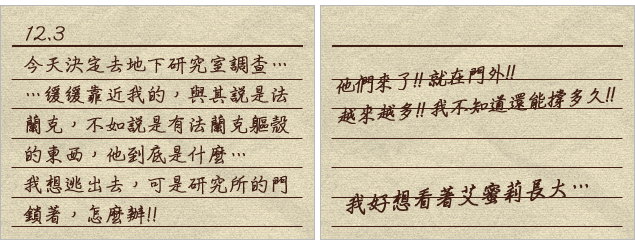 12.3
今天決定去地下研究室調查…
…緩緩靠近我的，與其說是法
蘭克，不如說是有法蘭克軀殼
的東西，他到底是什麼…
我想逃出去，可是研究所的門
鎖著，怎麼辦!!
他們來了!! 就在門外!!
越來越多!! 我不知道還能撐多久!!
我好想看著艾蜜莉長大…